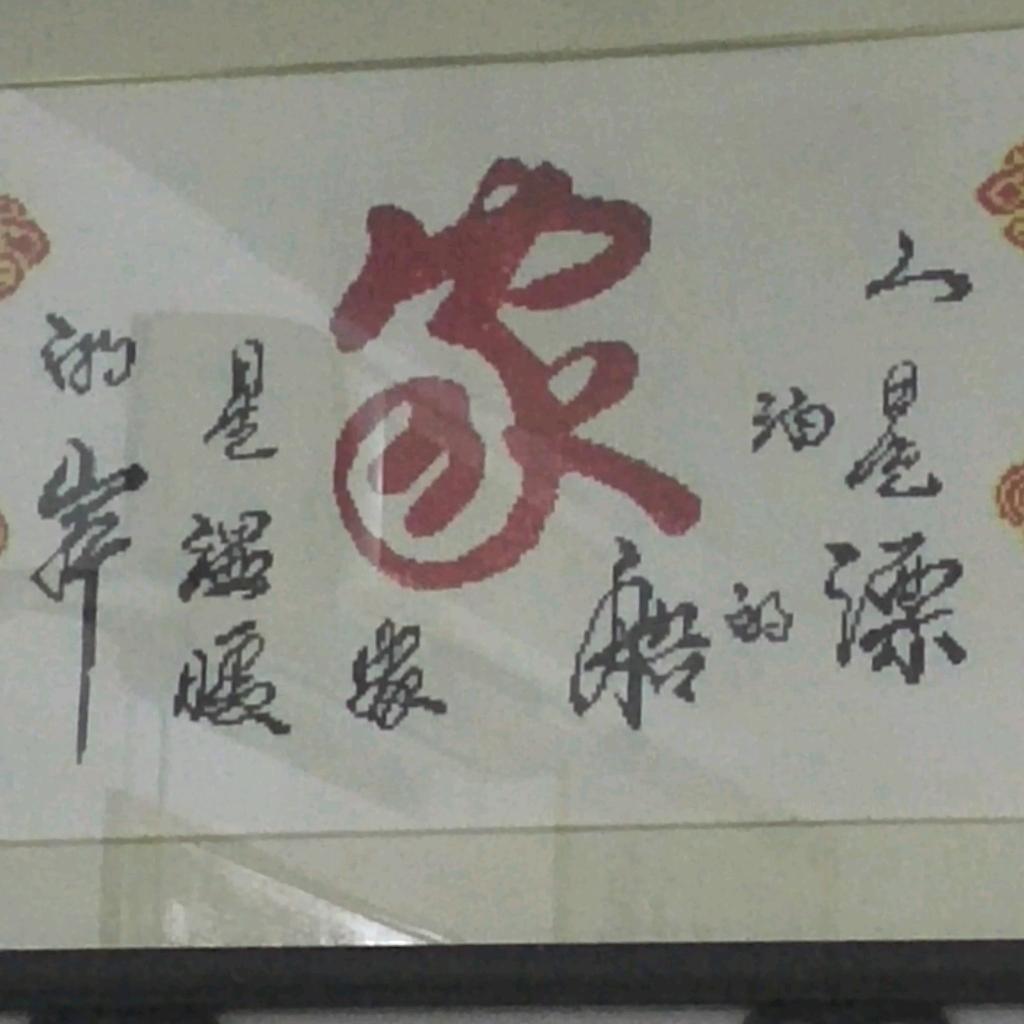 人是漂
泊的
船
家
家
是温暖
的岸